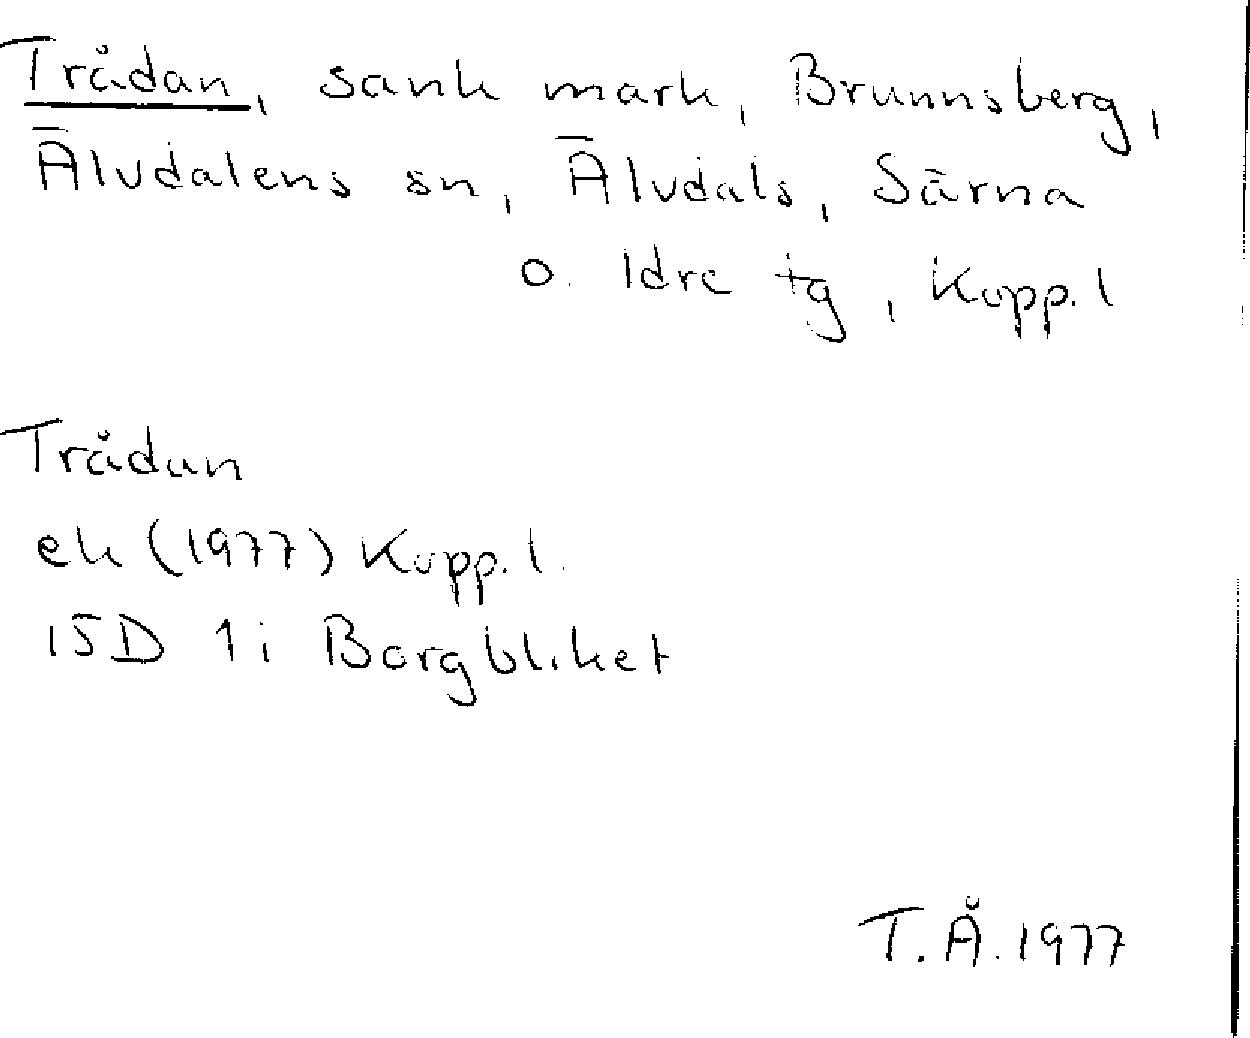 Trådan, sank mark, Brunnsberg,
Älvdalens sn, Älvdals, Särna
o. Idre tg, Kopp. l
Trådan
ek (1977) Kopp. l.
15D 1i Borgbliket
T.Å. 1977